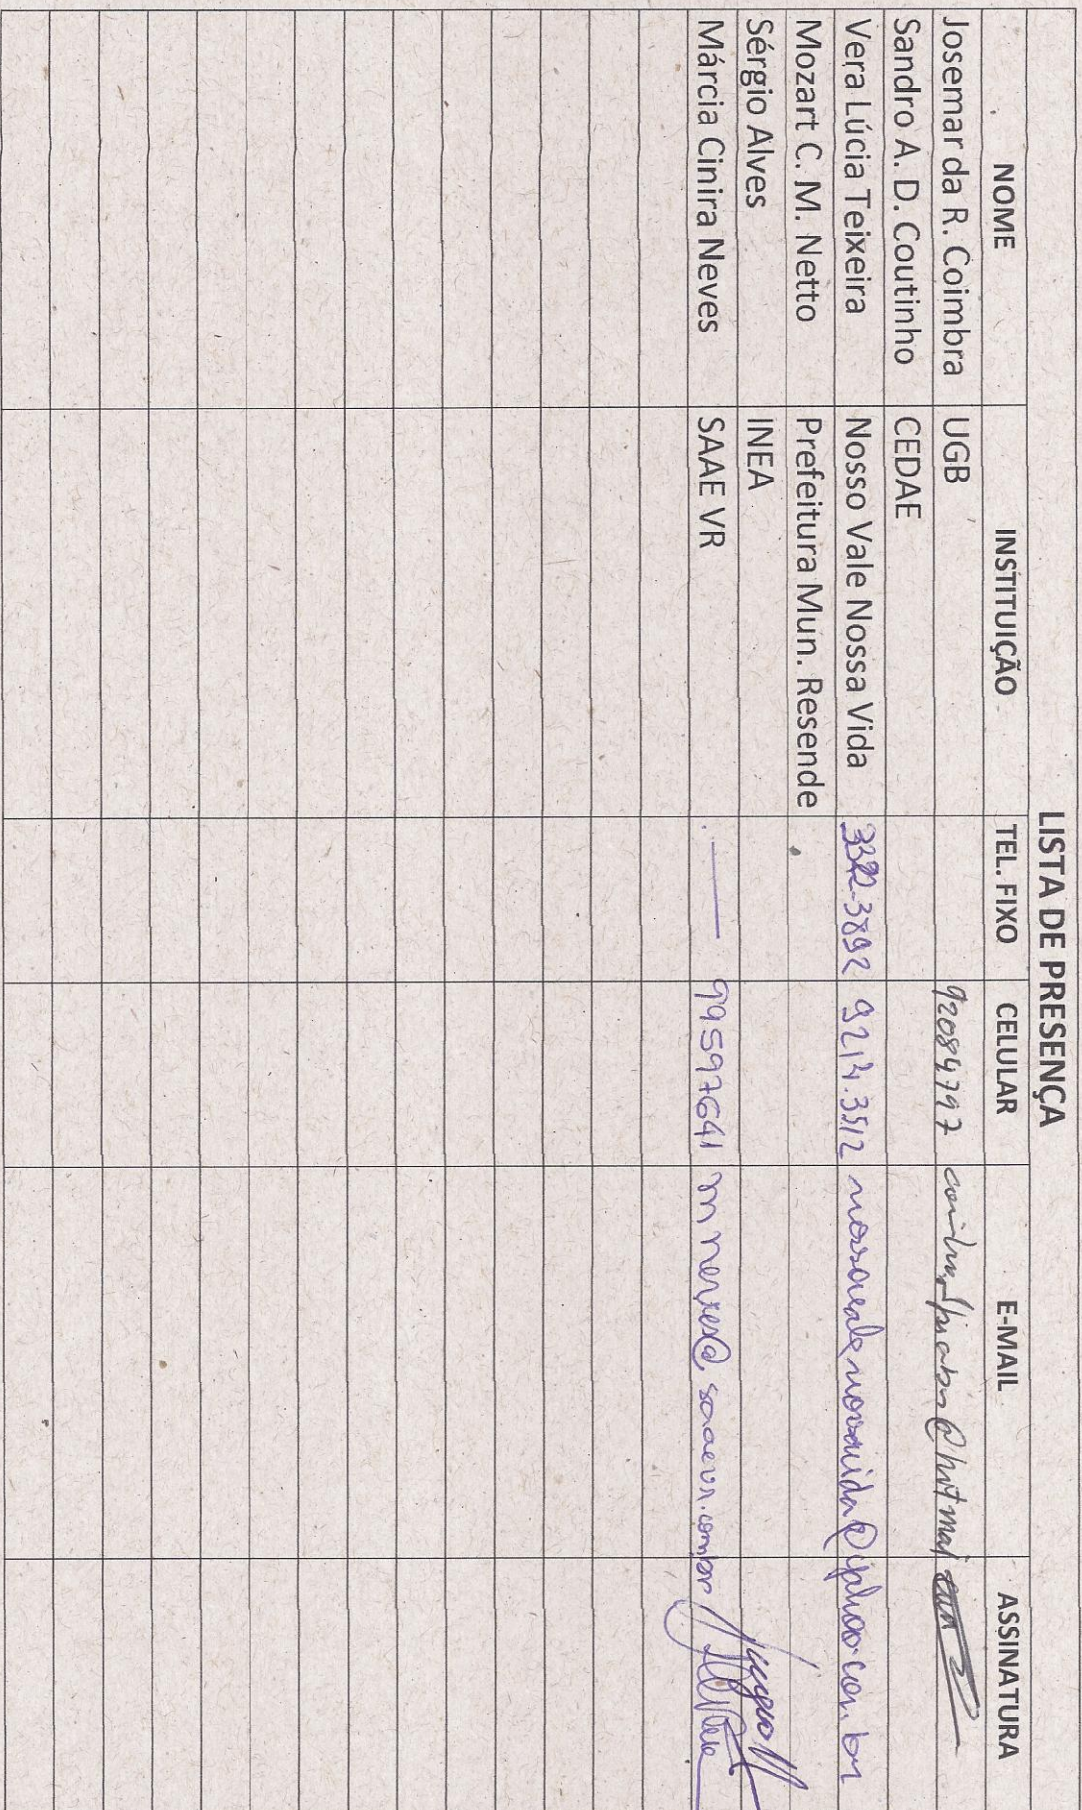 LISTA DE PRESENÇA
NOME INSTITUIÇÃO TEL. FIXO CELULAR E-MAIL ASSINATURA
Josemar da R. Coimbra UGB 92084797
Sandro A. D. Coutinho CEDAE
Vera Lúcia Teixeira Nosso Vale Nossa Vida 3322-3892 9214.3512 nossovalenossavida@yahoo.com.br
Mozart C. M. Netto Prefeitura Mun. Resende
Sérgio Alves INEA
Márcia Cinira Neves SAAE VR 99597641 mneves@saaevr.com.br